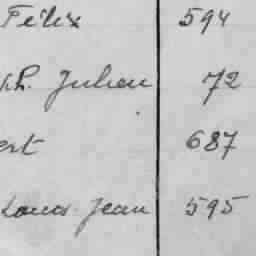 Félix 594
ph. Julien 72
ert 687
Louis Jean 595